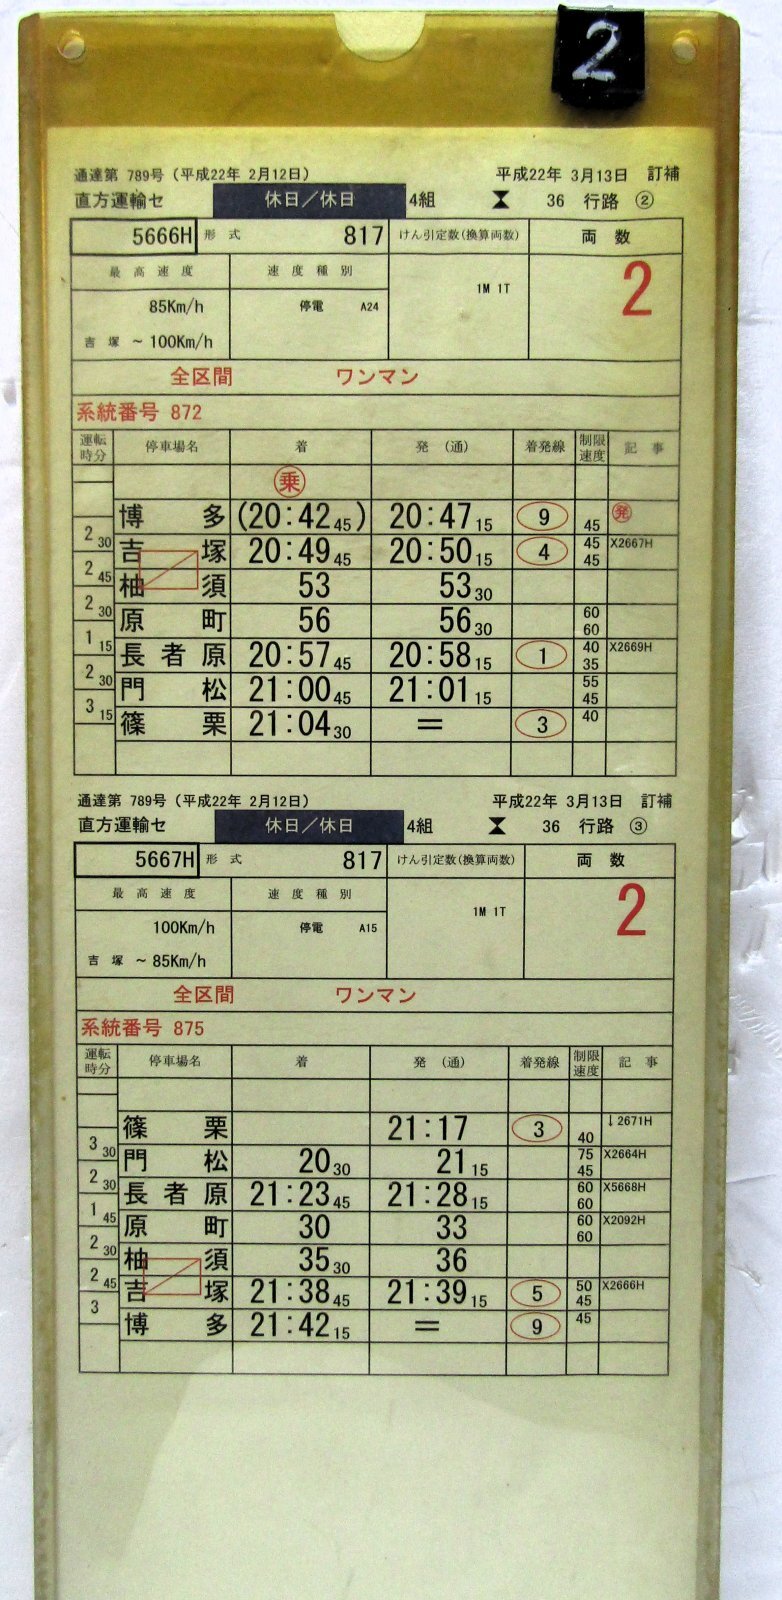 2
通達第 789号 (平成22年 2月12日) 平成22年 3月13日 訂補
直方運輸セ 休日/休日 4組 36 行路 ②
5666H 形式 817 けん引定数(換算両数) 両数
最高速度 速度種別 1M 1T 2
85Km/h 停電 A24
吉塚 ~ 100Km/h
全区間 ワンマン
系統番号 872
運転時分 停車場名 着 発 (通) 着発線 制限速度 記事
乗
博多 (20:42 45) 20:47 15 9 45 発
2 30
吉塚 20:49 45 20:50 15 4 45 45 X2667H
2 45
柚須 53 53 30
2 30
原町 56 56 30 60 60
1 15
長者原 20:57 45 20:58 15 1 40 35 X2669H
2 30
門松 21:00 45 21:01 15 55 45
3 15
篠栗 21:04 30 = 3 40
通達第 789号 (平成22年 2月12日) 平成22年 3月13日 訂補
直方運輸セ 休日/休日 4組 36 行路 ③
5667H 形式 817 けん引定数(換算両数) 両数
最高速度 速度種別 1M 1T 2
100Km/h 停電 A15
吉塚 ~ 85Km/h
全区間 ワンマン
系統番号 875
運転時分 停車場名 着 発 (通) 着発線 制限速度 記事
篠栗 21:17 3 40 ↓2671H
3 30
門松 20 30 21 15 75 45 X2664H
2 30
長者原 21:23 45 21:28 15 60 60 X5668H
1 45
原町 30 33 60 60 X2092H
2 30
柚須 35 30 36
2 45
吉塚 21:38 45 21:39 15 5 50 45 X2666H
3
博多 21:42 15 = 9 45